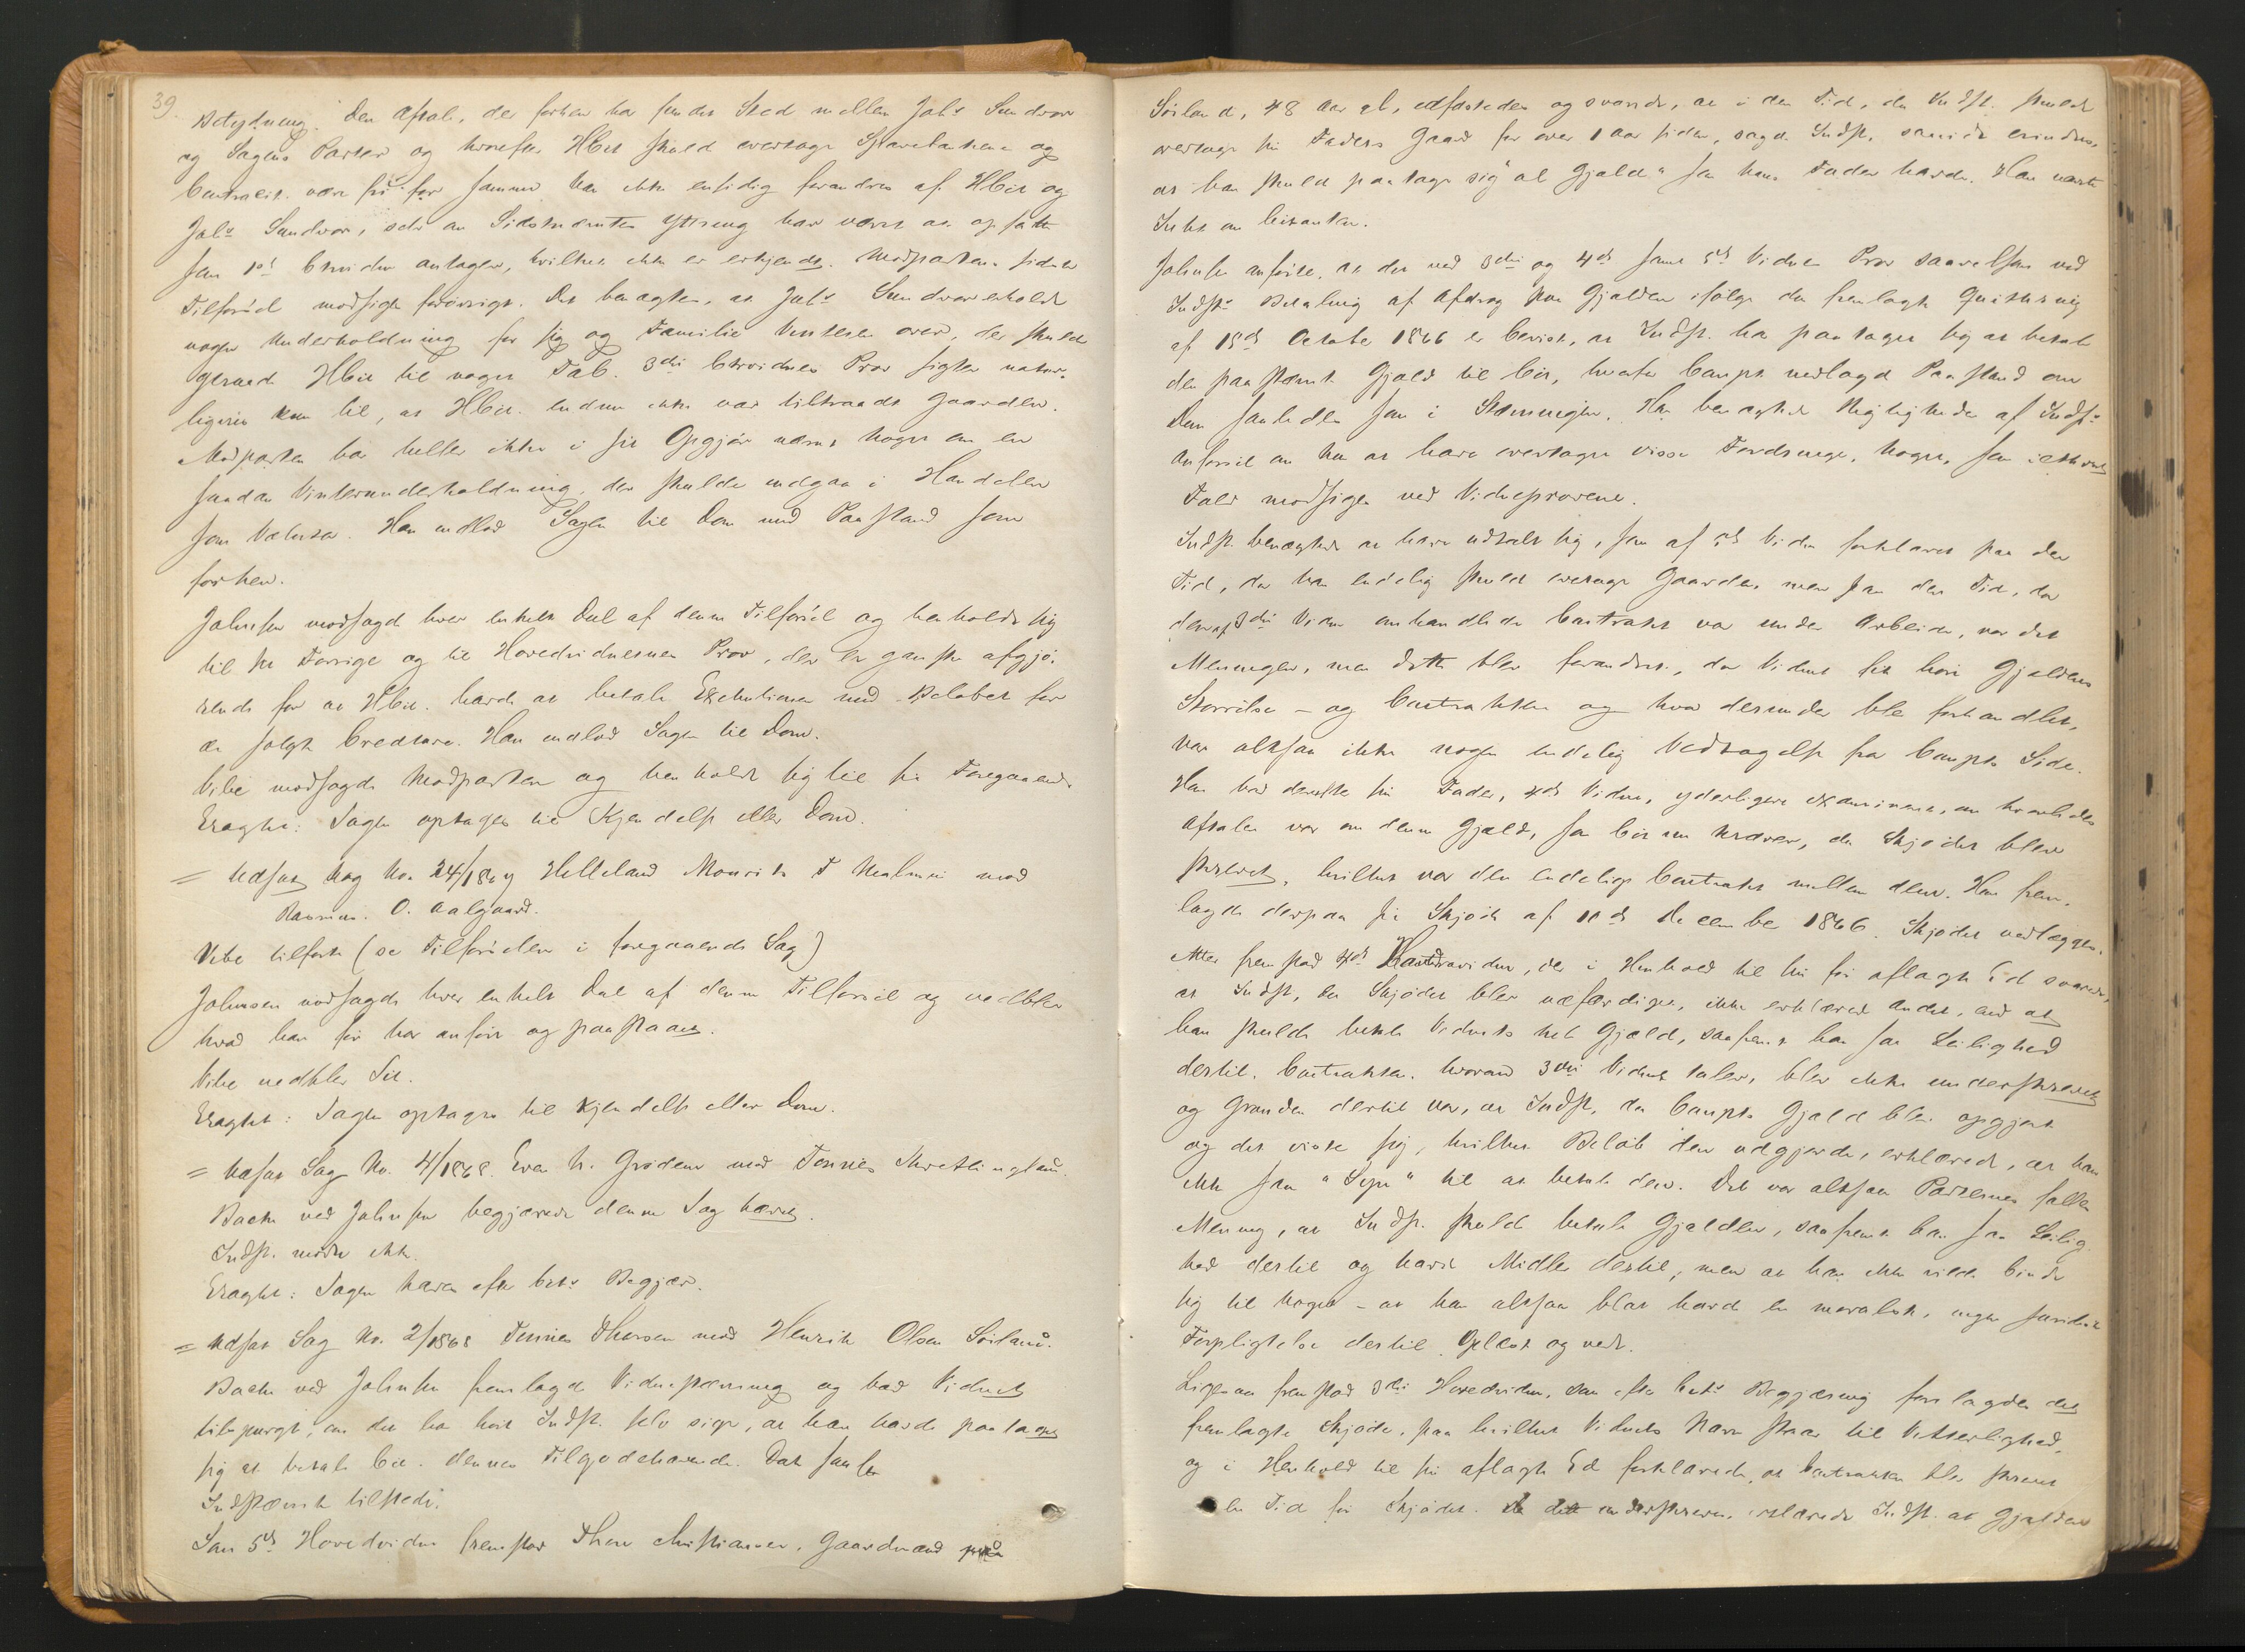 39.
Betydning. Den Aftale, der forhen har fundet Sted mellem Johs Sundvor
og Sagens Parter og hvorefter Hbit skulde overtage Sparebanken og
Contracit. være fri for samme kan ikke ensidig forandres af Hbit og
Johs Sundvor, selv om Sidstnævntes Yttring har været at opfatte
som 1ste Ctvidne antager, hvilket ikke er erkjendt. Modpartens sidste
Tilførsel modsiges forøvrigt. Det benægtes, at Johs Sundvor erholdt
nogen Underholdning for sig og Familie Vinteren over, der skulde
geraade Hbit til noget Tab. 3die Ctvidnes Prov sigter natur-
ligviis kun til, at Hbit. endnu ikke var tiltraadt Gaarden.
Modparten har heller ikke i sit Opgjør nævnt noget om en
saadan Vinterunderholdning, der skulde indgaa i Handelen
som Valuta. Han indlod Sagen til Dom med Paastand som
forhen.
Johnsen modsagde hver enkelt Deel af denne Tilførsel og henholdt sig
til sit Forrige og til Hovedvidnernes Prov, der er ganske afgjø-
rende for at Hbit. havde at betale Exekutionen med Beløbet for
de solgte Creature. Han indlod Sagen til Dom.
Vibe modsagde Modparten og henholdt sig til sit Foregaaende.
Eragtet: Sagen optages til Kjendelse eller Dom.
= Udsat Sag No. 24/1867 Helleland Mourits T Malmin mod
Rasmus. O. Aalgaard.
Vibe tilførte (se Tilførselen i foregaaende Sag)
Johnsen modsagde hver enkelt Deel af denne Tilførsel og vedblev
hvad han før har anført og paastaaet.
Vibe vedblev Sit.
Eragtet: Sagen optages til Kjendelse eller Dom.
= Udsat Sag No. 4/1868. Even H. Grødem mod Tønnes
Bache ved Johnsen begjærede denne Sag hævet.
Indst. mødte ikke.
Eragtet: Sagen hæves efter Cits Begjær.
= Udsat Sag No. 2/1868 Tønnes Thorsen mod Henrik Olsen Søiland.
Bache ved Johnsen fremlagde Vidnestævning og bad Vidnet
tilspurgt, om det har hørt Indst. selv sige, at han havde paataget
sig at betale Cit. dennes Tilgodehavende. Dat samler
Indstævnte tilstede.
Som 5te Hovedvidne fremstod Thore Christiansen, Gaardmand paa
Søiland, 48 Aar gl., edfæstedes og svarede, at i den Tid, da Indst. skulde
overtage sin Faders Gaard for over 1 Aar siden, sagde Indst., saavidt erindres,
at han skulde paatage sig "al Gjæld" som hans Fader havde. Han nævnte
Intet om Citanten.
Johnsen anførte, at det ved 3die og 4de samt 5te Vidnes Prov saavelsom ved
Indsts Betaling af Afdrag paa Gjælden ifølge den fremlagte Quittering
af 15de October 1866 er bevist, at Indst. har paataget sig at betale
den paastævnte Gjæld til Cit, hvorfor Compt. nedlagde Paastand om
Dom saaledes som i Stævningen. Han benægtede Rigtigheden af Indsts
Anførsel om kun at have overtaget visse Fordringer, noget, som i ethvert
Fald modsiges ved Vidneprovene.
Indst. benægtede at have udtalt sig, som af 5te Vidne forklaret paa den
Tid, da han endelig skulde overtage Gaarden, men paa den Tid, da
den af 3die Vidne omhandlede Contrakt var under Arbeide, var det
Meningen, men dette blev forandret, da Vidnet fik høre Gjældens
Størrelse – og Contrakten og hvad derunder blev forhandlet,
var altsaa ikke nogen endelig Vedtagelse fra Compts Side.
Han bad derefter sin Fader, 4de Vidne, yderligere examineret, om hvorledes
Aftalen var om denne Gjæld, som Cit nu kræver, da Skjødet blev
skrevet, hvilket var den endelige Contrakt mellem dem. Han frem-
lagde derpaa sit Skjøde af 10de December 1866. Skjødet vedlægges.
Atter fremstod 4de Hovedvidne, der i Henhold til sin før aflagte Ed svarede,
at Indst, da Skjødet blev udfærdiget, ikke erklærede Andet, end at
han skulde betale Vidnets hele Gjæld, saafremt han saa Leilighed
dertil. Contrakten, hvorom 3die Vidnet taler, blev ikke underskrevet
og Grunden dertil var, at Indst, da Compts Gjæld blev opgjort
og det viste sig, hvilket Beløb den udgjorde, erklærede, at han
ikke saa "Syn" til at betale den. Det var altsaa Parternes fælles
Mening, at Indst. skulde betale Gjælden, saafremt han saa Leilig-
hed dertil og havde Midler dertil, men at han ikke vilde binde
sig til noget – at han altsaa blot havde en moralsk, ingen juridisk
Forpligtelse dertil. Oplæst og vedt.
Ligesaa fremstod 3die Hovedvidne, som efter Cits Begjæring forelagdes det
fremlagte Skjøde, paa hvilket Vidnets Navn staar til Vitterlighed,
og i Henhold til sin aflagte Ed forklarede, at Contrakten blev skrevet
en Tid før Skjødet. Da det underskreves, erklærede Indst. at Gjælden